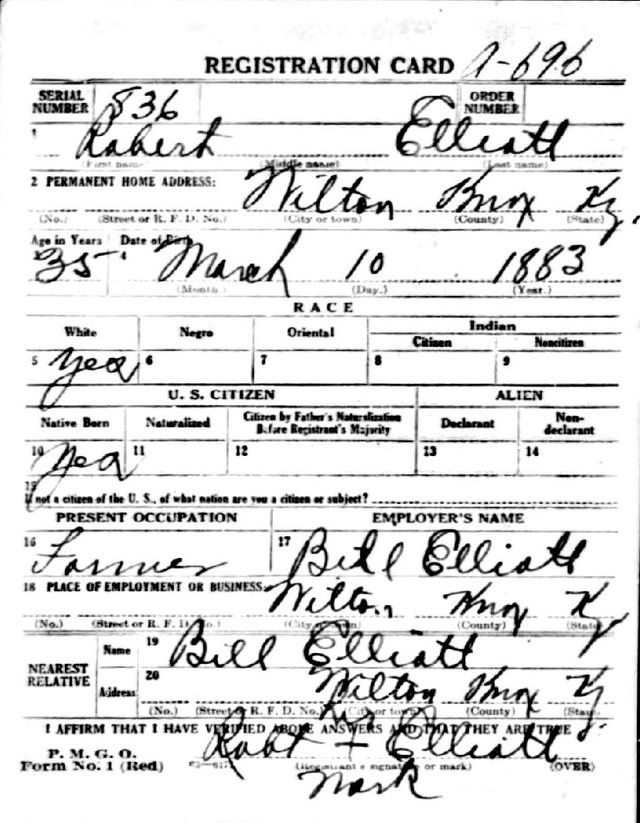 REGISTRATION CARD A-696
SERIAL NUMBER 836 ORDER NUMBER
1 Robert Elliott
(First name) (Middle name) (Last name)
2 PERMANENT HOME ADDRESS: Wilton Knox Ky.
(No.) (Street or R. F. D. No.) (City or town) (County) (State)
Age in Years Date of Birth
3 35 4 March 10 1883
(Month.) (Day.) (Year.)
RACE
White Negro Oriental Indian
Citizen Noncitizen
5 Yes 6 7 8 9
U. S. CITIZEN ALIEN
Native Born Naturalized Citizen by Father's Naturalization Before Registrant's Majority Declarant Non-declarant
10 Yes 11 12 13 14
15
If not a citizen of the U. S., of what nation are you a citizen or subject?
PRESENT OCCUPATION EMPLOYER'S NAME
16 Farmer 17 Bill Elliott
18 PLACE OF EMPLOYMENT OR BUSINESS: Wilton Knox Ky
(No.) (Street or R. F. D. No.) (City or town) (County) (State)
NEAREST RELATIVE Name 19 Bill Elliott
Address 20 Wilton Knox Ky
(No.) (Street or R. F. D. No.) (City or town) (County) (State)
I AFFIRM THAT I HAVE VERIFIED ABOVE ANSWERS AND THAT THEY ARE TRUE
his
P. M. G. O. Robt + Elliott
Form No. 1 (Red) (Registrant's signature or mark) (OVER)
Mark